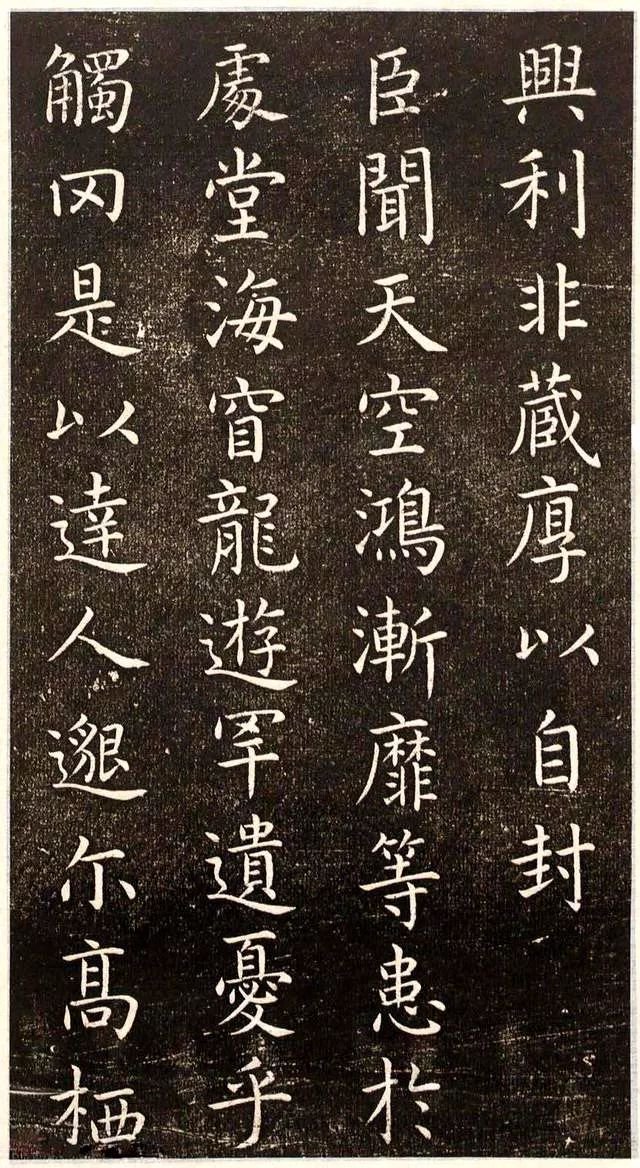 興利非蔵厚以自封
臣聞天空鴻漸靡等患於
處堂海窅龍遊罕遺憂乎
觸罔是以達人邈尔高栖